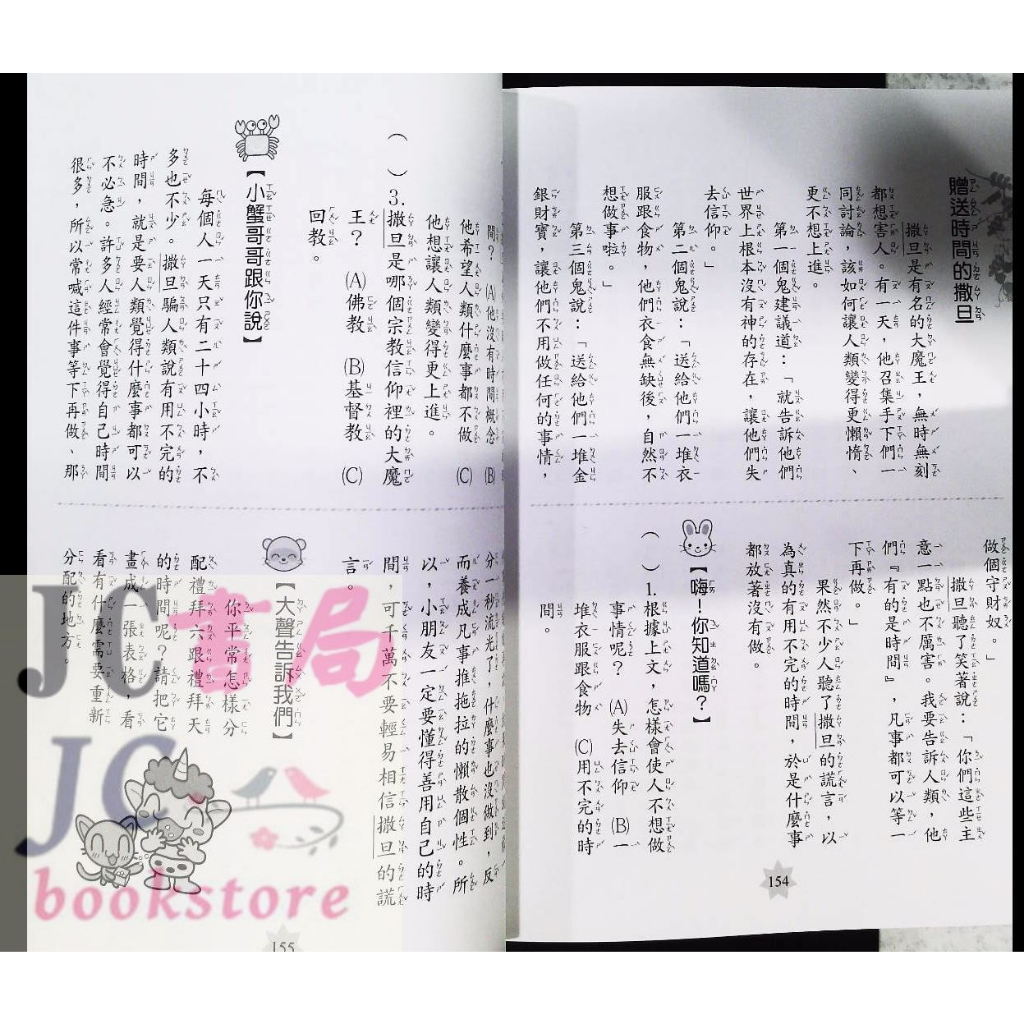 贈送時間的撒旦
撒旦是有名的大魔王，無時無刻
都想害人。有一天，他召集手下們一
同討論，該如何讓人類變得更懶惰、
更不想上進。
第一個鬼建議道：「就告訴他們
世界上根本沒有神的存在，讓他們失
去信仰。」
第二個鬼說：「送給他們一堆衣
服跟食物，他們衣食無缺後，自然不
想做事啦。」
第三個鬼說：「送給他們一堆金
銀財寶，讓他們不用做任何的事情，
做個守財奴。」
撒旦聽了笑著說：「你們這些主
意一點也不厲害。我要告訴人類，他
們『有的是時間』，凡事都可以等一
下再做。」
果然不少人聽了撒旦的謊言，以
為真的有用不完的時間，於是什麼事
都放著沒有做。
【嗨！你知道嗎？】
（ ）1.根據上文，怎樣會使人不想做
事情呢？ (A)失去信仰 (B)一
堆衣服跟食物 (C)用不完的時
間。
154
間？ (A)他沒有時間概念 (B)
他希望人類什麼事都不做 (C)
他想讓人類變得更上進。
（ ）3.撒旦是哪個宗教信仰裡的大魔
王？ (A)佛教 (B)基督教 (C)
回教。
【小蟹哥哥跟你說】
每個人一天只有二十四小時，不
多也不少。撒旦騙人類說有用不完的
時間，就是要人類覺得什麼事都可以
不必急。許多人經常會覺得自己時間
很多，所以常喊這件事等下再做、那
分一秒流光了，什麼事也沒做到，反
而養成凡事推拖拉的懶散個性。所
以，小朋友一定要懂得善用自己的時
間，可千萬不要輕易相信撒旦的謊
言。
【大聲告訴我們】
你平常怎樣分
配禮拜六跟禮拜天
的時間呢？請把它
畫成一張表格，看
看有什麼需要重新
分配的地方。
155
JC書局
JC
bookstore